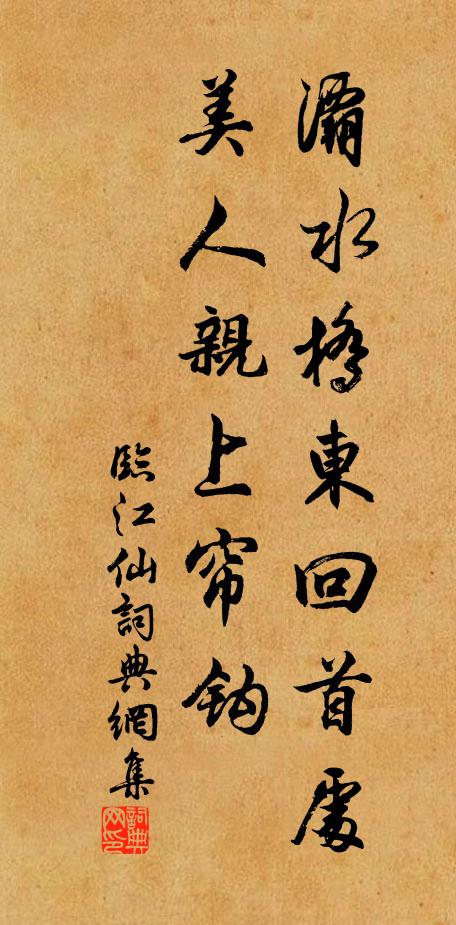 灞水橋東回首處
美人親上帘鈎
臨江仙詞典網集
詞典网印